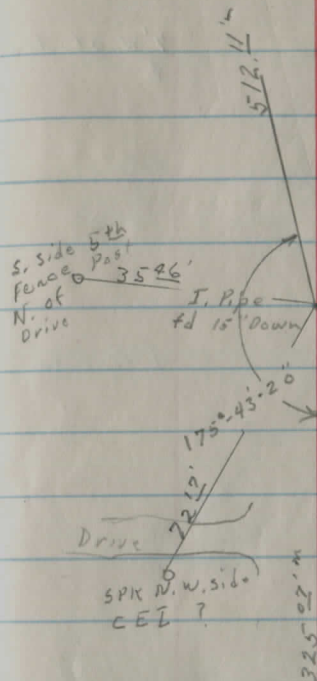 512.11'm
S. side 5th
Fence Post
N. of
Drive
35.46'
I. Pipe
fd 15" Down
175°-43'-20"
22.17'
Drive
SPK N.W. side
CEI ?
325.02'm